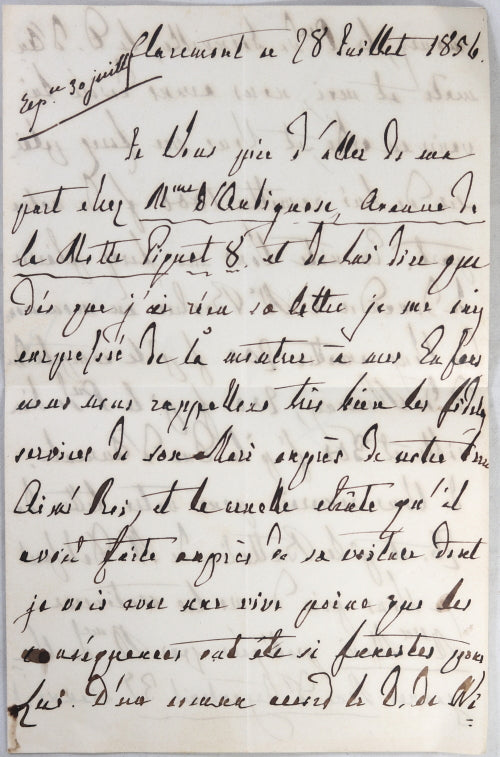 Claremont ce 28 Juillet 1856.
Rep. le 30 juillet
Je Vous prie d'aller de ma
part chez Mme d'Aubignosc, Avenue de
la Motte Piquet 8 et de lui dire que
dès que j'ai reçu sa lettre je me suis
empressée de la montrer à mes Enfans
nous nous rappellons très bien les fidèles
services de son Mari auprès de notre bien
Aimé Roi, et la cruelle chûte qu'il
avoit faite auprès de sa voiture dont
je vois avec une vive peine que les
conséquences ont été si funestes pour
Lui. D'un commun accord le D. de Ne